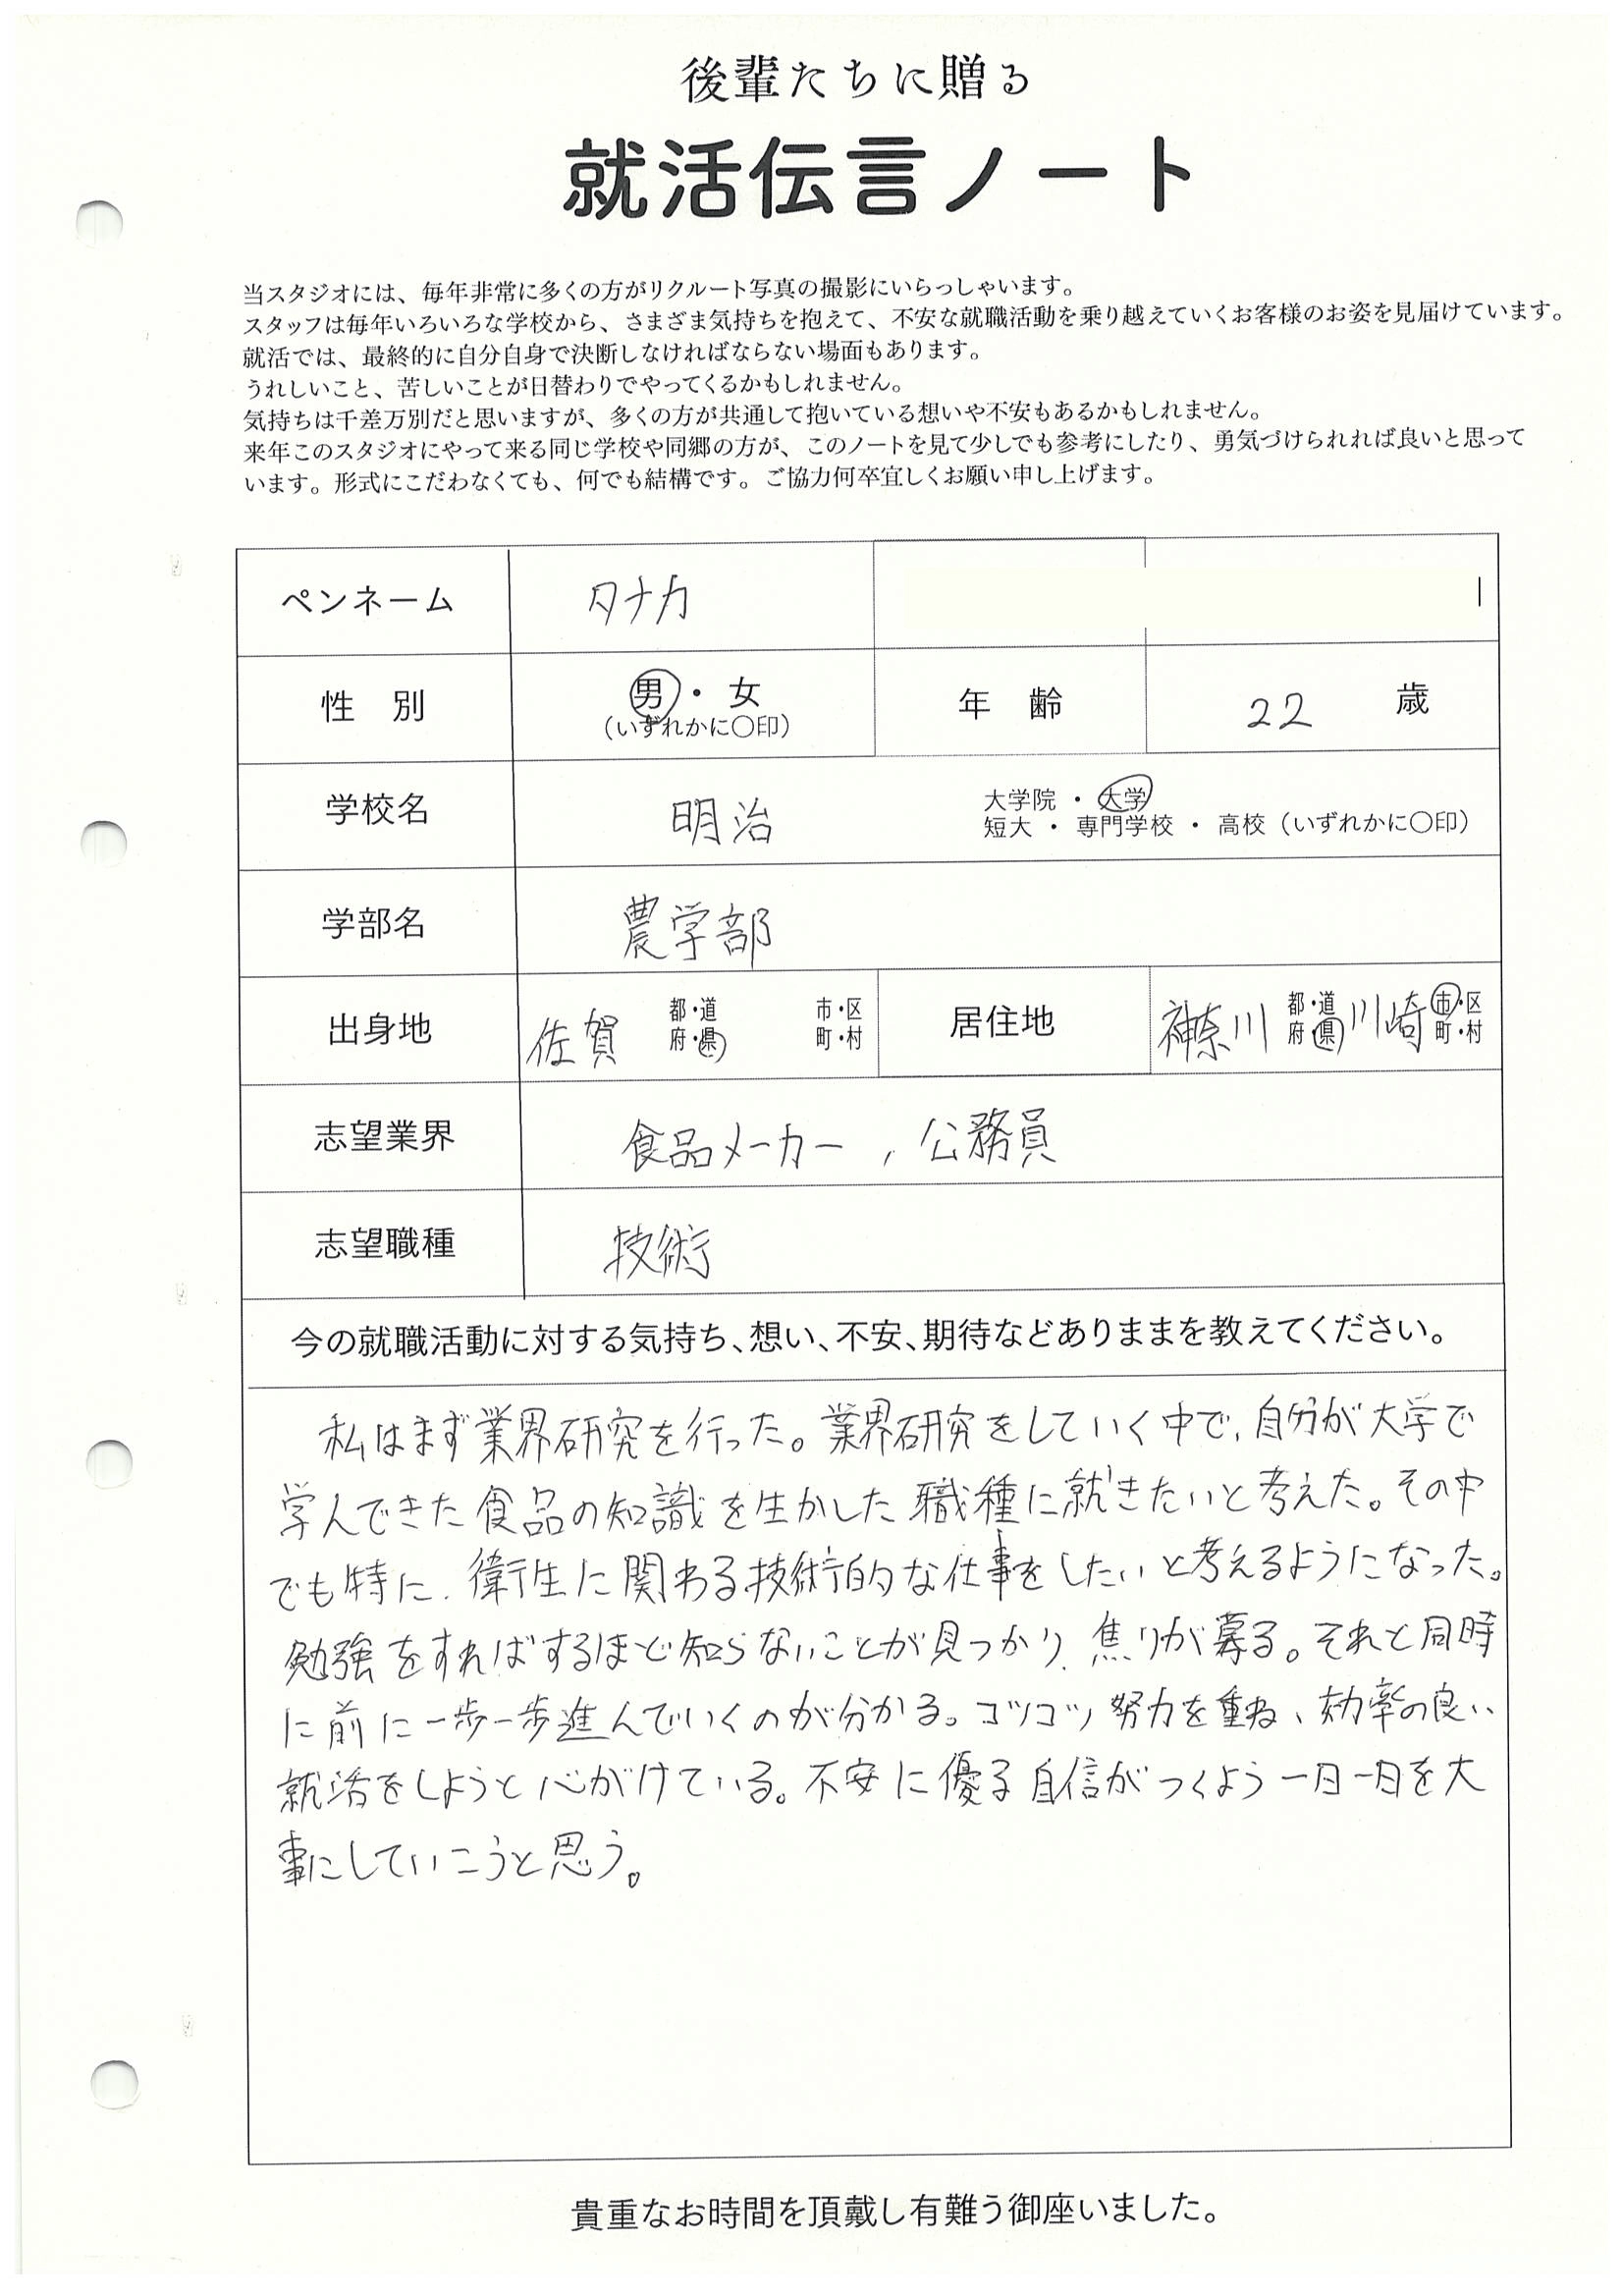 後輩たちに贈る
就活伝言ノート
当スタジオには、毎年非常に多くの方がリクルート写真の撮影にいらっしゃいます。
スタッフは毎年いろいろな学校から、さまざま気持ちを抱えて、不安な就職活動を乗り越えていくお客様のお姿を見届けています。
就活では、最終的に自分自身で決断しなければならない場面もあります。
うれしいこと、苦しいことが日替わりでやってくるかもしれません。
気持ちは千差万別だと思いますが、多くの方が共通して抱いている想いや不安もあるかもしれません。
来年このスタジオにやって来る同じ学校や同郷の方が、このノートを見て少しでも参考にしたり、勇気づけられれば良いと思って
います。形式にこだわなくても、何でも結構です。ご協力何卒宜しくお願い申し上げます。
ペンネーム タナカ
性 別 男・女 (いずれかに〇印) 年 齢 22 歳
学校名 明治 大学院 ・ 大学
短大 ・ 専門学校 ・ 高校(いずれかに〇印)
学部名 農学部
出身地 佐賀 都・道 府・県 市・区 町・村 居住地 神奈川 都・道 府・県 川崎 市・区 町・村
志望業界 食品メーカー , 公務員
志望職種 技術
今の就職活動に対する気持ち、想い、不安、期待などありままを教えてください。
私はまず業界研究を行った。業界研究をしていく中で、自分が大学で
学んできた食品の知識を生かした職種に就きたいと考えた。その中
でも特に、衛生に関わる技術的な仕事をしたいと考えるようになった。
勉強をすればするほど知らないことが見つかり、焦りが募る。それと同時
に前に一歩一歩進んでいくのが分かる。コツコツ努力を重ね、効率の良い
就活をしようと心がけている。不安に優る自信がつくよう一日一日を大
事にしていこうと思う。
貴重なお時間を頂戴し有難う御座いました。